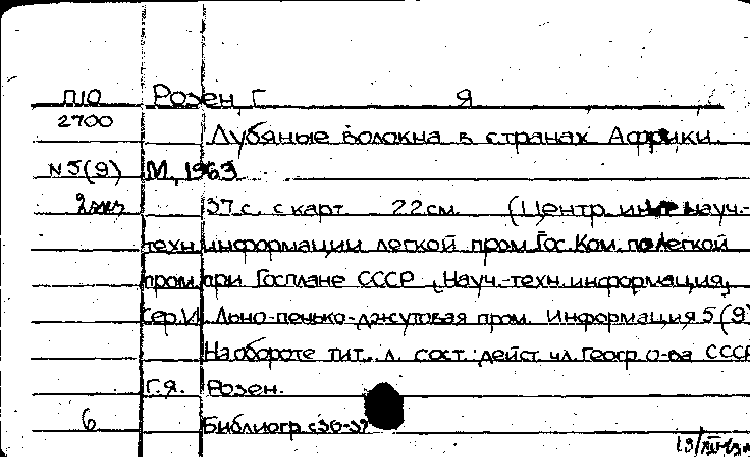 П10 Розен, Г. Я
2700
Лубяные волокна в странах Африки.
N5(9) М., 1963
2экз 37 с. с карт. 22см. (Центр. ин-т науч.-
техн информации легкой пром. Гос. Ком. по легкой
пром. при Госплане СССР. Науч.-техн. информация,
Сер. VI. Льно-пенько-джутовая пром. Информация 5(9)
На обороте тит. л. сост.: дейст. чл. Геогр. о-ва СССР
Г.Я. Розен.
6 Библиогр. с36-37